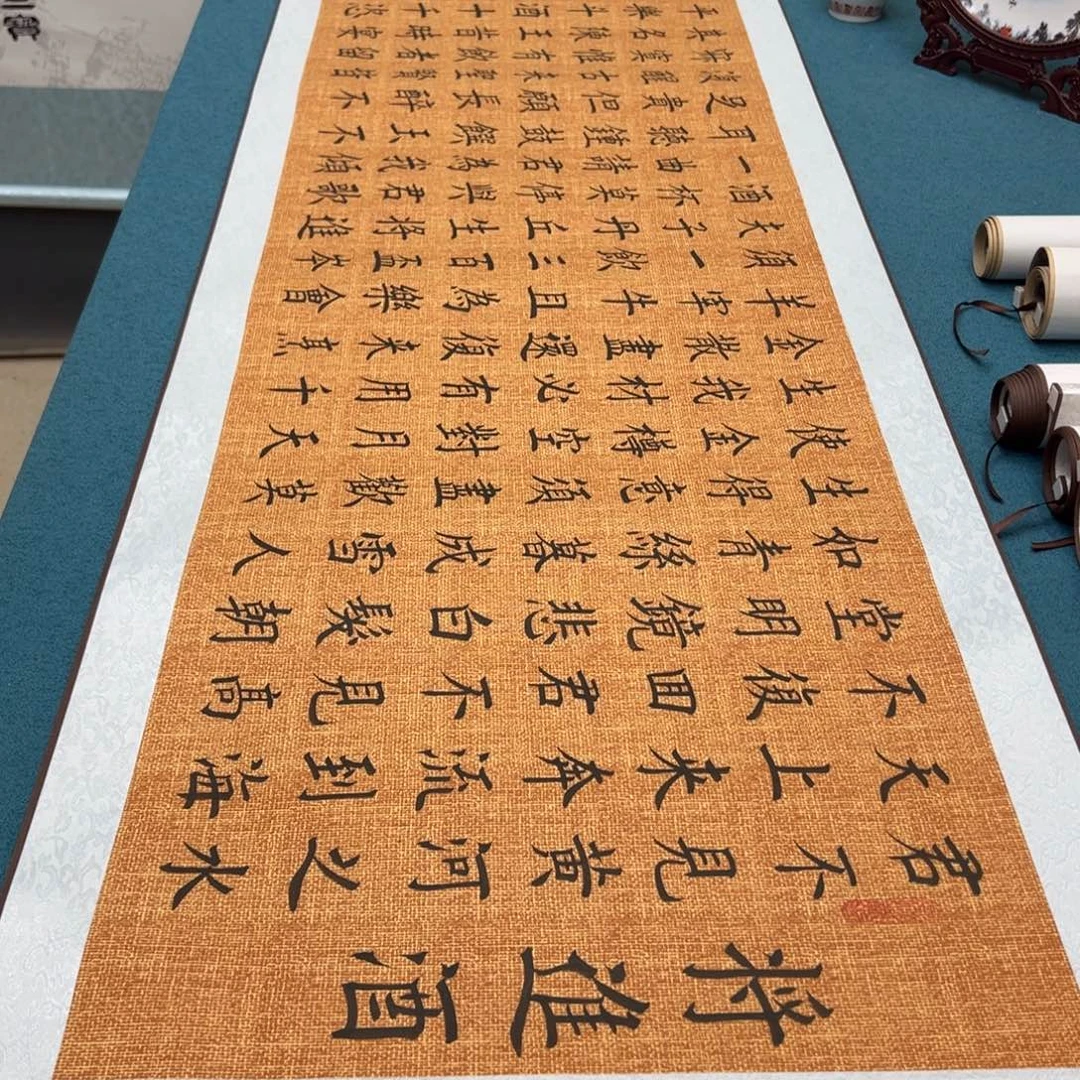 將進酒
君不見黃河之水
天上來奔流到海
不復回君不見高
堂明鏡悲白髮朝
如青絲暮成雪人
生得意須盡歡莫
使金樽空對月天
生我材必有用千
金散盡還復來烹
羊宰牛且為樂會
須一飲三百盃岑
夫子丹丘生將進
酒杯莫停與君歌
一曲請君為我傾
耳聽鐘鼓饌玉不
足貴但願長醉不
古聖賢皆
寞惟有飲者留
其名陳王昔時宴
樂斗酒十千恣